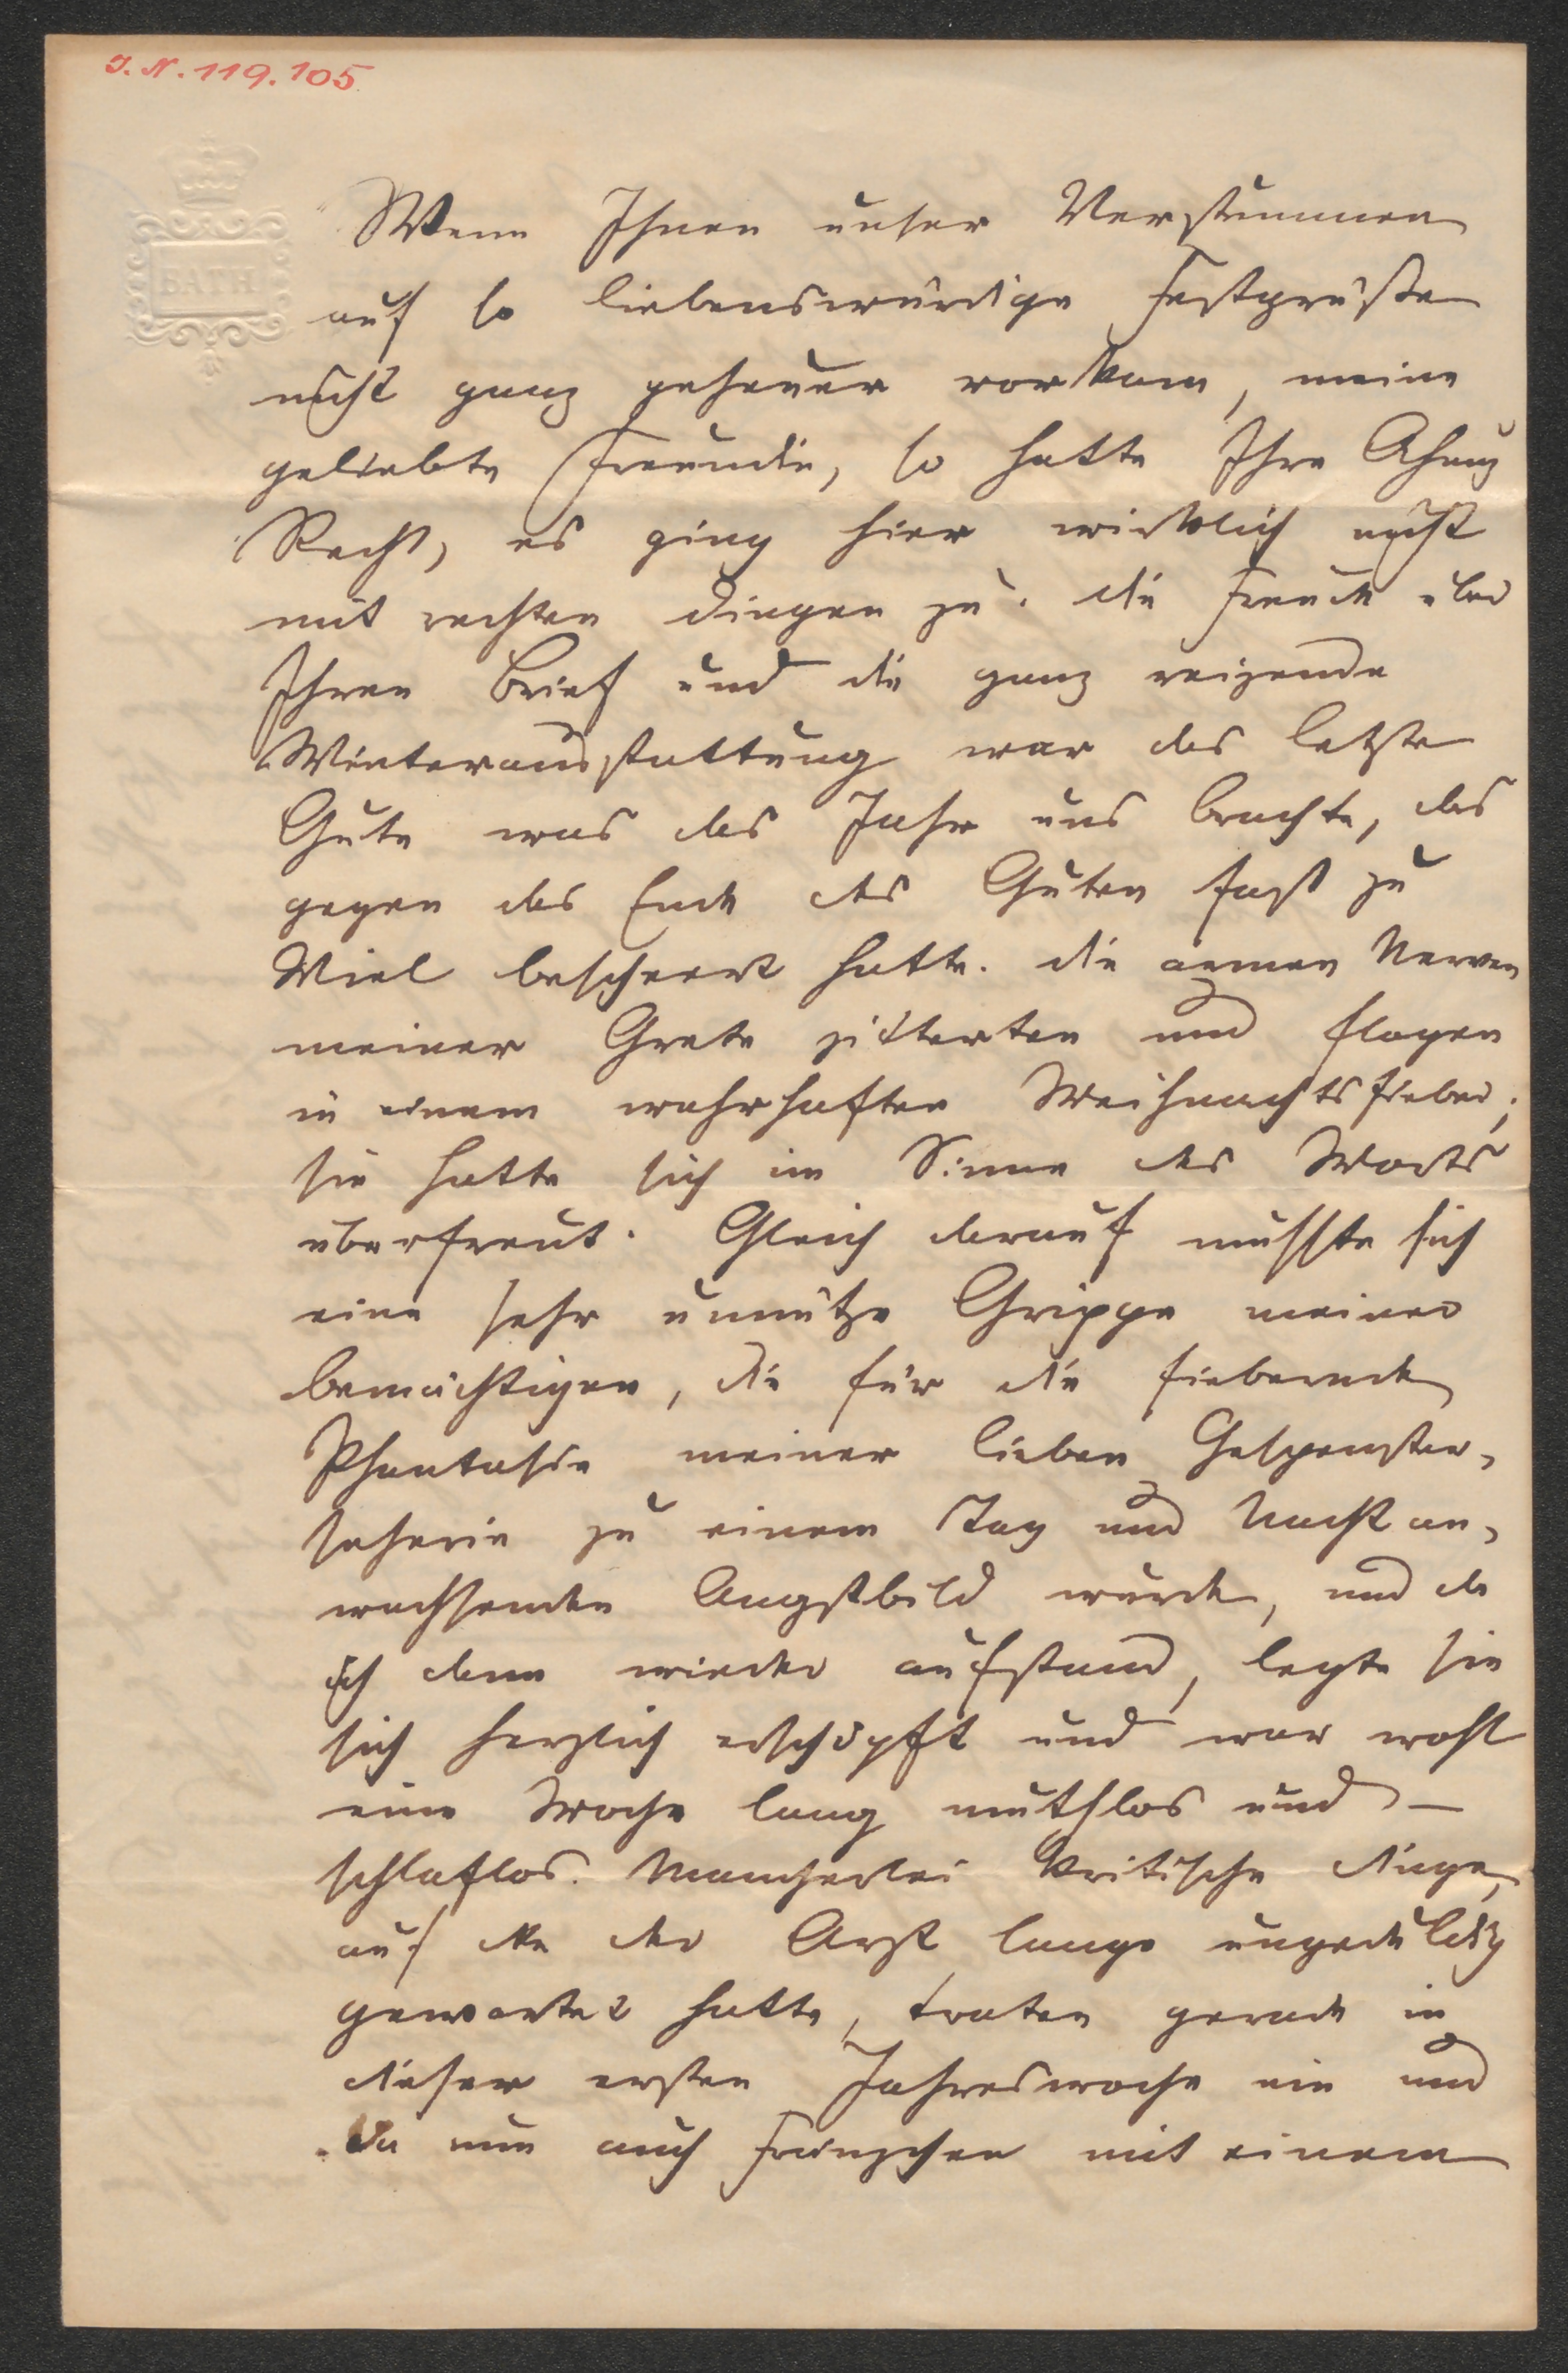 J. N. 119.105
BATH
Wenn Ihnen unser Verstummen
auf so liebenswürdige Festgrüße
nicht ganz geheuer vorkam, meine
geliebte Freundin, so hatte Ihre Ahnung
Recht, es ging hier wirklich nicht
mit rechten Dingen zu. Die Freude über
Ihren Brief und die ganz reizende
Winterausstattung war das letzte
Gute was das Jahr uns brachte, das
gegen das Ende des Guten fast zu
Viel bescheert hatte. Die armen Nerven
meiner Grete zitterten und flogen
in einem wahrhaften Weihnachtsfieber;
sie hatte sich im Sinne des Worts
überfreut. Gleich darauf musste sich
eine sehr unnütze Grippe meiner
bemächtigen, die für die fiebernde
Phantasie meiner lieben Gespenster-
seherin zu einem Tag und Nacht an-
wachsenden Angstbild wurde, und da
ich dann wieder aufstand, legte sie
sich herzlich erschöpft und war wohl
eine Woche lang muthlos und –
schlaflos. Mancherlei kritische Dinge,
auf die der Arzt lange ungeduldig
gewartet hatte, traten gerade in
dieser ersten Jahreswoche ein und
da nun auch Fränzchen mit einem